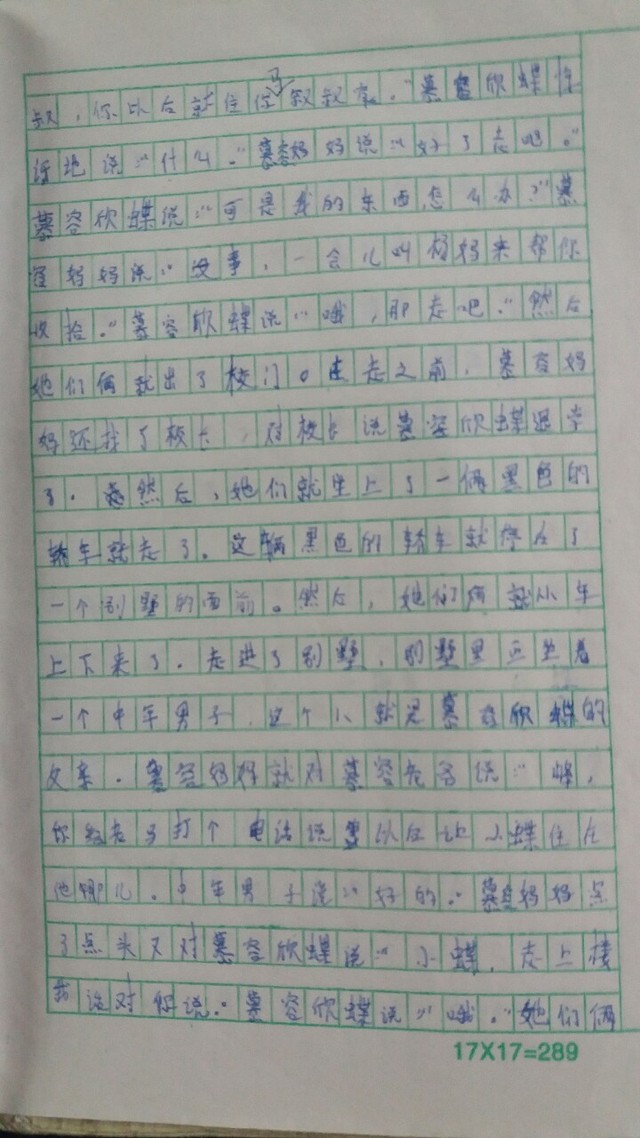 叔，你以后就住你叔叔家。”慕容欣蝶惊
讶地说：“什么。”慕容妈妈说：“好了走吧。”
慕容欣蝶说：“可是我的东西怎么办？”慕
容妈妈说：“没事，一会儿叫杨妈来帮你
收拾。”慕容欣蝶说：“哦，那走吧。”然后
她们俩就出了校门。在走之前，慕容妈
妈还找了校长，对校长说慕容欣蝶退学
了。然后，她们就坐上了一俩黑色的
轿车就走了。这辆黑色的轿车就停在了
一个别墅的面前。然后，她们俩就从车
上下来了。走进了别墅，别墅里面坐着
一个中年男子，这个人就是慕容欣蝶的
父亲。慕容妈妈就对慕容先生说：“
你给老三打个电话说以后让小蝶住在
他哪儿。中年男子说：“好的。”慕容妈妈点
了点头又对慕容欣蝶说：“小蝶，走上楼
我话对你说。”慕容欣蝶说：“哦。”她们俩
17X17=289